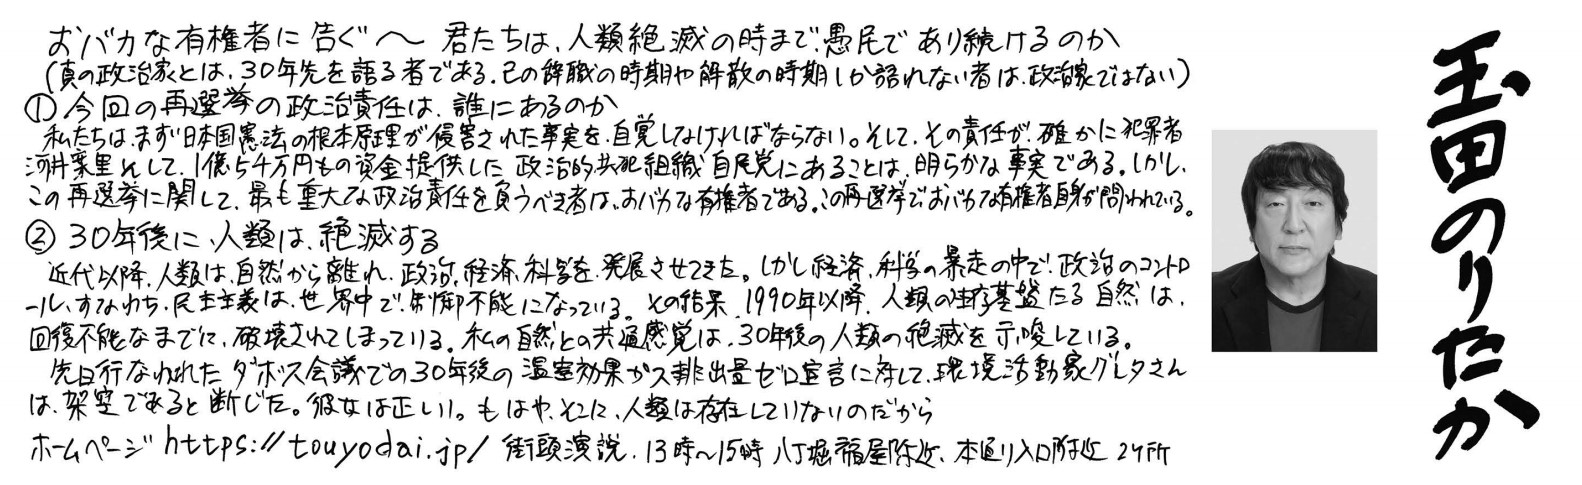 おバカな有権者に告ぐへ〜 君たちは、人類絶滅の時まで、愚民であり続けるのか
(真の政治家とは、30年先を語る者である。己の辞職の時期や解散の時期しか語れない者は、政治家ではない)
① 今回の再選挙の政治責任は、誰にあるのか
私たちは、まず日本国憲法の根本原理が侵害された事実を、自覚しなければならない。そして、その責任が、確かに犯罪者
河井案里そして、1億5千万円もの資金提供した政治的共犯組織自民党にあることは、明らかな事実である。しかし、
この再選挙に関して、最も重大な政治責任を負うべき者は、おバカな有権者である。この再選挙で、おバカな有権者自身が問われている。
② 30年後に、人類は、絶滅する
近代以降、人類は、自然から離れ、政治、経済、科学を、発展させてきた。しかし経済、科学の暴走の中で、政治のコントロ
ール、すなわち、民主主義は、世界中で、制御不能になっている。その結果、1990年以降、人類の生存基盤たる自然は、
回復不能なまでに、破壊されてしまっている。私の自然との共通感覚は、30年後の人類の絶滅を示唆している。
先日行なわれたダボス会議での30年後の温室効果ガス排出量ゼロ宣言に対して、環境活動家グレタさん
は、架空であると断じた。彼女は正しい。もはや、そこに、人類は存在していないのだから
ホームページ https://touyodai.jp/ 街頭演説、13時〜15時 八丁堀福屋附近、本通り入口附近 2ヶ所
玉田のりたか